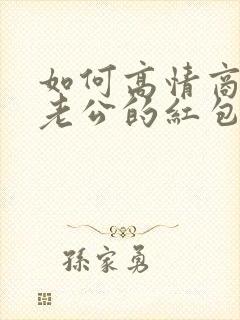 如何高情商
老公的红包
孫家勇